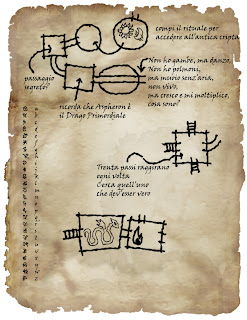 compi il rituale per
accedere all'antica cripta
Non ho gambe, ma danzo,
Non ho polmoni,
ma muoio senz'aria,
non vivo,
ma cresco e mi moltiplico,
cosa sono?
passaggio
segreto?
ricorda che Aspheron è
il Drago Primordiale
a b c d e f g h i j k l m n o p q r s t u v w x y z
Trenta passi raggirano
ogni volta
Cerca quell'uno
che dev'esser vero